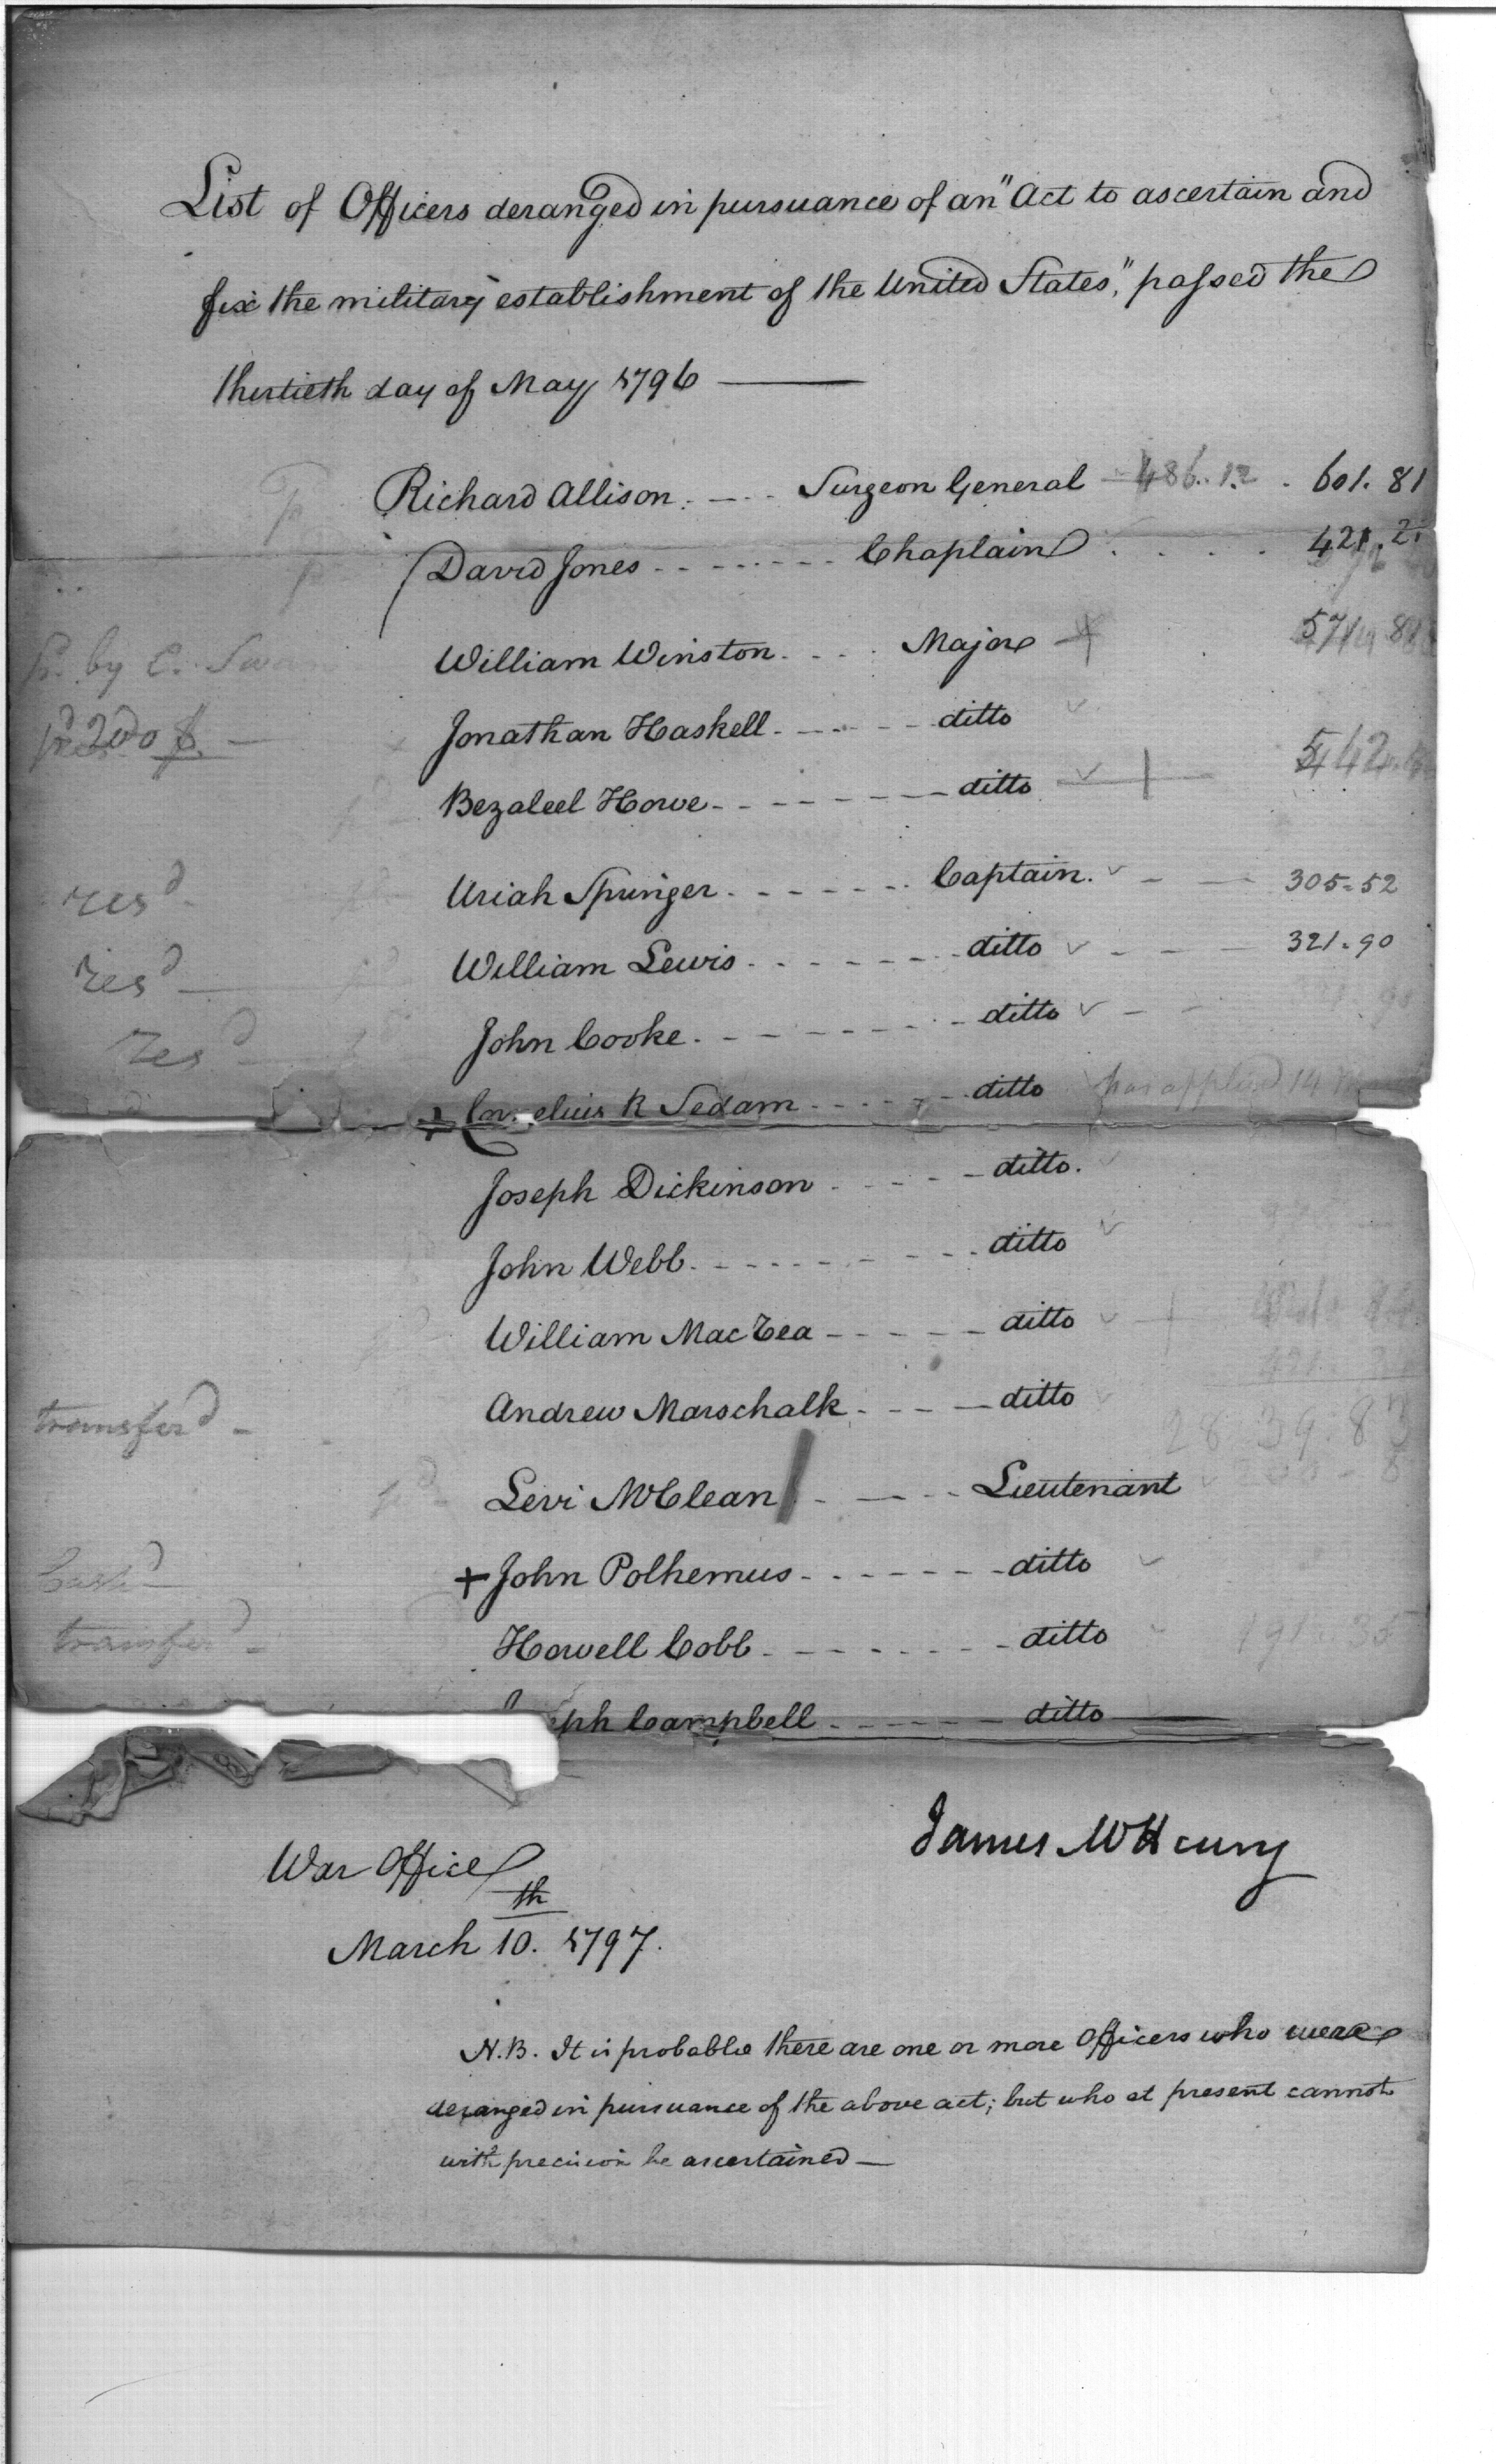 List of Officers deranged in pursuance of an "Act to ascertain and
fix the military establishment of the United States", passed the
thirtieth day of May 1796 —
Richard Allison. - - - Surgeon General - 486.12 . 601. 81
David Jones - - - - - - - - Chaplain . . . . 421. 2
pd. by C. Swan William Winston. - - . Major + 571
pd. 200 $ — Jonathan Haskell - - - - - ditto
Bezaleel Howe - - - - - - - ditto + 542
resd - Uriah Springer - - - - - - - Captain. - — 305-52
resd — William Lewis - - - - - - - ditto - - — 321-90
resd - John Cooke. - - - - - - - - ditto - -
+ Cornelius R Sedam - - - - - - ditto has applied 14
Joseph Dickinson - - - - - ditto.
John Webb - - - - - - - - - ditto
William MacRea - - - - - ditto +
transferd - Andrew Marschalk - - - — ditto
28 39. 83
pd - Levi McClean - — - - Lieutenant
+ John Polhemus - - - - - - - ditto
transferd - Howell Cobb - - - - - - - - ditto 191. 35
eph Campbell - - - - - — ditto —
James McHenry
War Office
March 10.th 1797.
N.B. It is probable there are one or more Officers who were
deranged in pursuance of the above act; but who at present cannot
with precision be ascertained —